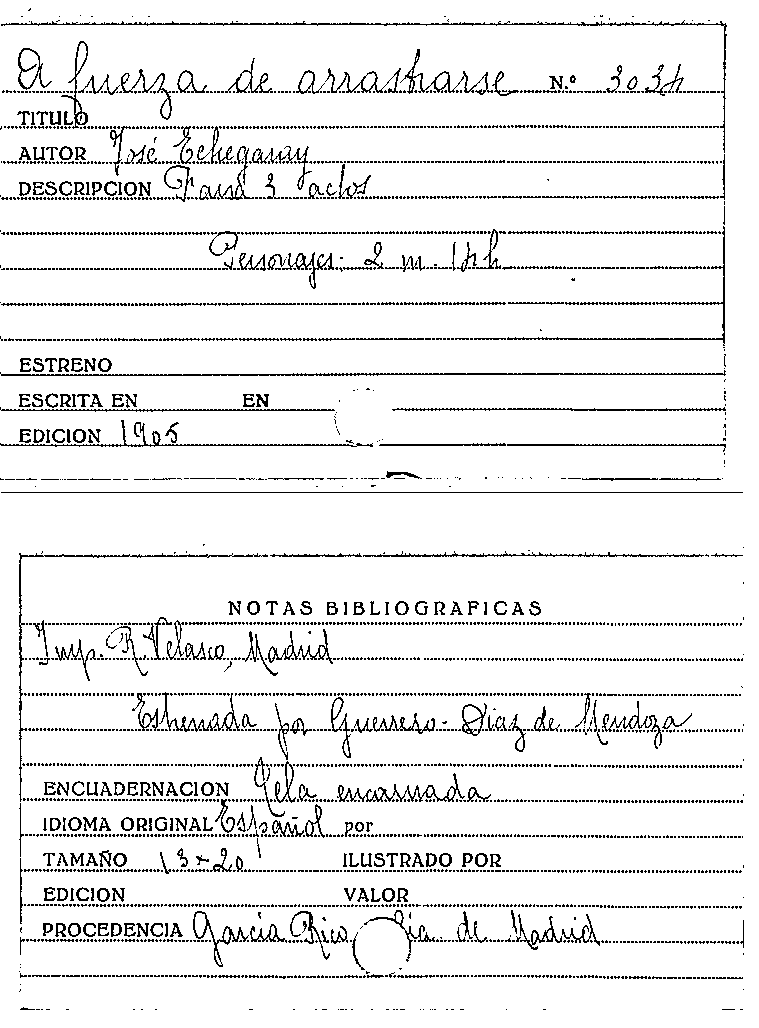 A fuerza de arrastrarse N.º 3034
TITULO
AUTOR José Echegaray
DESCRIPCION Farsa 3 actos
Personajes: 2 m. 14 h
ESTRENO
ESCRITA EN EN
EDICION 1905
NOTAS BIBLIOGRAFICAS
Imp. R. Velasco, Madrid
Estrenada por Guerrero-Diaz de Mendoza
ENCUADERNACION Tela encarnada
IDIOMA ORIGINAL Español por
TAMAÑO 13-20 ILUSTRADO POR
EDICION VALOR
PROCEDENCIA García Rico de Madrid